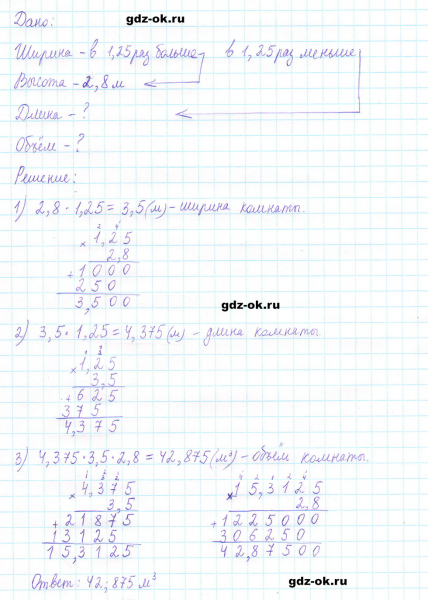 gdz-ok.ru
Дано:
Ширина - в 1,25 раз больше в 1,25 раз меньше
Высота - 2,8 м
Длина - ?
Объём - ?
Решение:
1) 2,8 · 1,25 = 3,5 (м) - ширина комнаты.
2 4
× 1,25
2,8
+ 1000
250
3,500
gdz-ok.ru
2) 3,5 · 1,25 = 4,375 (м) - длина комнаты.
1 2
× 1,25
3,5
+ 625
375
4,375
3) 4,375 · 3,5 · 2,8 = 42,875 (м³) - объём комнаты.
× 4,375 × 15,3125
3,5 2,8
+ 21875 + 1225000
13125 306250
15,3125 42,87500
Ответ: 42,875 м³
gdz-ok.ru